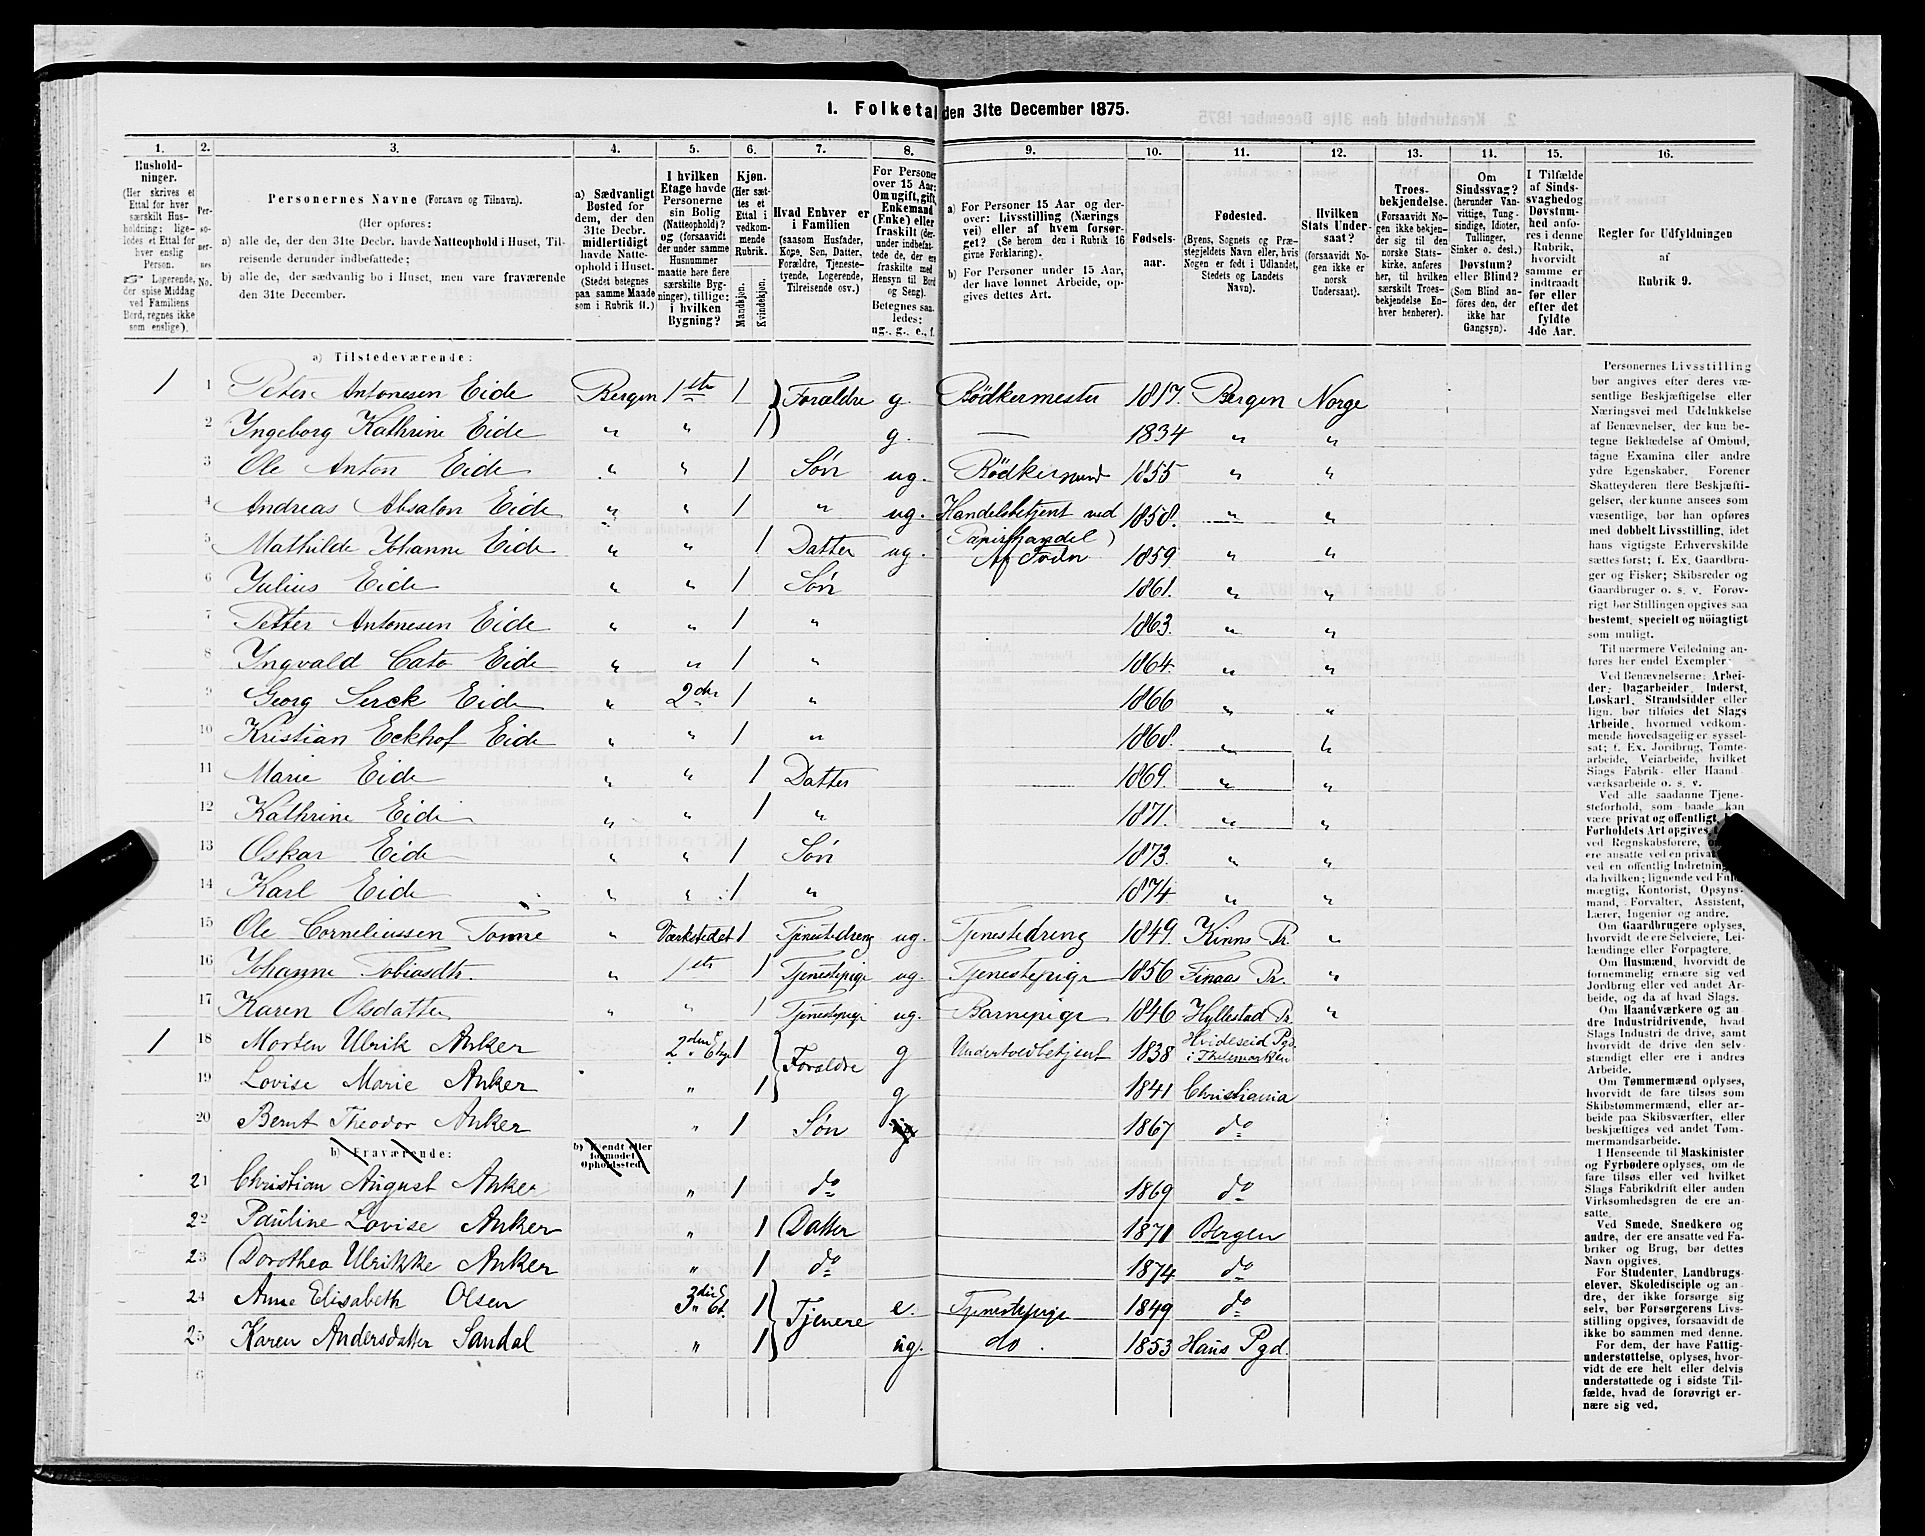 1. Folketal den 31te December 1875.
1. 2. 3. 4. 5. 6. 7. 8. 9. 10. 11. 12. 13. 14. 15. 16.
Hushold-
ninger.
(Her skrives et
Ettal for hver
særskilt Hus-
holdning; lige-
ledes et Ettal for
hver enslig
Person.
Logerende,
der spise Middag
ved Familiens
Bord, regnes ikke
som enslige).
Per-
so-
ner-
nes
No.
Personernes Navne (Fornavn og Tilnavn).
(Her opføres:
a) alle de, der den 31te Decbr. havde Natteophold i Huset, Til-
reisende derunder indbefattede;
b) alle de, der sædvanlig bo i Huset, men vare fraværende
den 31te December.
a) Sædvanligt
Bosted for
dem, der den
31te Decbr.
midlertidigt
havde Natte-
ophold i Huset.
(Stedet betegnes
paa samme Maade
som i Rubrik 11.)
I hvilken
Etage havde
Personerne
sin Bolig
(Natteophold)?
og (forsaavidt
der under samme
Husnummer
maatte høre flere
særskilte Byg-
ninger), tillige:
i hvilken
Bygning?
Kjøn.
(Her sæt-
tes et
Ettal i
vedkom-
mende
Rubrik.
Mandkjøn.
Kvindekjøn.
Hvad Enhver er
i Familien
(saasom Husfader,
Kone, Søn, Datter,
Forældre, Tjeneste-
tyende, Logerende,
Tilreisende osv.)
For Personer
over 15 Aar:
Om ugift, gift,
Enkemand
(Enke) eller
fraskilt (der-
under indbefat-
tede de, der ere
fraskilte med
Hensyn til Bord
og Seng).
Betegnes saa-
ledes:
ug., g., e., f.
a) For Personer 15 Aar og der-
over: Livsstilling (Nærings
vei) eller af hvem forsør-
get? (Se herom den i Rubrik 16
givne Forklaring).
b) For Personer under 15 Aar,
der have lønnet Arbeide, op-
gives dettes Art.
Fødsels-
aar.
Fødested.
(Byens, Sognets og Præ-
stegjeldets Navn eller, hvis
Nogen er født i Udlandet,
Stedets og Landets
Navn).
Hvilken
Stats Under-
saat?
(forsaavidt No-
gen ikke er
norsk
Undersaat).
Troes-
bekjendelse.
(Forsaavidt No-
gen ikke bekjen-
der sig til den
norske Stats-
kirke, anføres
her, til hvilken
særskilt Troes-
bekjendelse En-
hver henhører).
Om
Sindssvag?
(herunder Van-
vittige, Tung-
sindige, Idioter,
Tullinger,
Sinker o. desl.)
Døvstum?
eller Blind?
(Som Blind an-
føres den, der
ikke har
Gangsyn).
I Tilfælde
af Sinds-
svaghed og
Døvstum-
hed anfø-
res i denne
Rubrik,
hvorvidt
samme er
indtraadt
før eller
efter det
fyldte
4de Aar.
Regler for Udfyldningen
af
Rubrik 9.
a) Tilstedeværende:
1 1 Peter Antonesen Eide Bergen 1ste 1 Forældre g. Bödkermester 1817. Bergen Norge
2 Yngeborg Kathrine Eide " " 1 g. — 1834 " "
3 Ole Anton Eide " " 1 Søn ug. Bödkersvend 1855 " "
4 Andreas Absalon Eide " " 1 " ug. Handelsbetjent ved 1858. " "
Papirhandel
5 Mathilde Johanne Eide " " 1 Datter ug. Af Faderen 1859 " "
6 Julius Eide " " 1 Søn 1861. " "
7 Petter Antonesen Eide " " 1 " 1863. " "
8 Yngvald Cato Eide " " 1 " 1864. " "
9 Georg Serck Eide " 2den 1 " 1866 " "
10 Kristian Eckhof Eide " " 1 " 1868. " "
11 Marie Eide " " 1 Datter 1869. " "
12 Kathrine Eide " " 1 " 1871. " "
13 Oskar Eide " " 1 Søn 1873. " "
14 Karl Eide " " 1 " 1874 " "
15 Ole Corneliussen Tonne " Værkstedet 1 Tjenestedreng ug. Tjenestedreng 1849. Kinns Pr. "
16 Johanne Tobiasdtr. " 1ste 1 Tjenestepige ug. Tjenestepige 1856 Finaas Pr. "
17 Karen Olsdatter " 1 Tjenestepige ug. Barnepige 1846 Hyllestad Pr "
1 18 Morten Ulrik Anker 2den Etge 1 Forældre g Undertoldbetjent 1838 Hvideseid Pgd.
i Thelemarken
19 Lovise Marie Anker " 1 g 1841 Christiania
20 Bernt Theodor Anker " 1 Søn ug 1867 do
b) Fraværende: b) Kjendt eller
formodet
Opholdssted.
21 Christian August Anker " 1 do 1869 do
22 Pauline Lovise Anker " 1 Datter 1871 Bergen
23 Dorothea Ulrikke Anker " 1 do 1874 do
24 Anne Elisabeth Olsen 3die Et. 1 Tjenere e. Tjenestepige 1849 do
25 Karen Andersdatter Sandal " 1 ug. do. 1853 Haus Pgd.
6
Personernes Livsstilling
bør angives efter deres væ-
sentlige Beskjæftigelse eller
Næringsvei med Udelukkelse
af Benævnelser, der kun be-
tegne Beklædelse af Ombud,
tagne Examina eller andre
ydre Egenskaber. Forener
Skatteyderen flere Beskjæfti-
gelser, der kunne ansees som
væsentlige, bør han opføres
med dobbelt Livsstilling, idet
hans vigtigste Erhvervskilde
sættes først; f. Ex. Gaardbru-
ger og Fisker; Skibsreder og
Gaardbruger o. s. v. Forøv-
rigt bør Stillingen opgives saa
bestemt, specielt og nöiagtigt
som muligt.
Til nærmere Veiledning an-
føres her endel Exempler:
Ved Benævnelserne: Arbei-
der, Dagarbeider, Inderst,
Løskarl, Strandsidder eller
lign. bør tilføies det Slags
Arbeide, hvormed vedkom-
mende hovedsagelig er syssel-
sat; f. Ex. Jordbrug, Tomte-
arbeide, Veiarbeide, hvilket
Slags Fabrik- eller Haand-
værksarbeide o. s. v.
Ved alle saadanne Tjene-
steforhold, som baade kan
være privat og offentligt,
Forholdets Art opgives,
ved Regnskabsførere,
ere ansatte ved en privat
ved en offentlig Indretning
da hvilken; lignende ved Fuld-
mægtig, Kontorist, Opsyns-
mand, Forvalter, Assistent,
Lærer, Ingeniør og andre.
Om Gaardbrugere oplyses,
hvorvidt de ere Selveiere, Lei-
lændinge eller Forpagtere.
Om Husmænd, hvorvidt de
fornemmelig ernære sig ved
Jordbrug eller ved andet Ar-
beide, og da af hvad Slags.
Om Haandværkere og an-
dre Industridrivende, hvad
Slags Industri de drive, samt
hvorvidt de drive den selv-
stændigt eller ere i andres
Arbeide.
Om Tømmermænd oplyses,
hvorvidt de fare tilsøs som
Skibstømmermænd, eller ar-
beide paa Skibsværfter, eller
beskjæftiges ved andet Tøm-
mermandsarbeide.
I Henseende til Maskinister
og Fyrbødere oplyses, om de
fare tilsøs eller ved hvilket
Slags Fabrikdrift eller anden
Virksomhedsgren de ere an-
satte.
Ved Smede, Snedkere og
andre, der ere ansatte ved Fa-
briker og Brug, bør dettes
Navn opgives.
For Studenter, Landbrugs-
elever, Skoledisciple og an-
dre, der ikke forsørge sig
selv, bør Forsørgerens Livs-
stilling opgives, forsaavidt de
ikke bo sammen med denne.
For dem, der have Fattig-
understøttelse, oplyses, hvor-
vidt de ere helt eller delvis
understøttede og i sidste Til-
fælde, hvad de forøvrigt er-
nære sig ved.